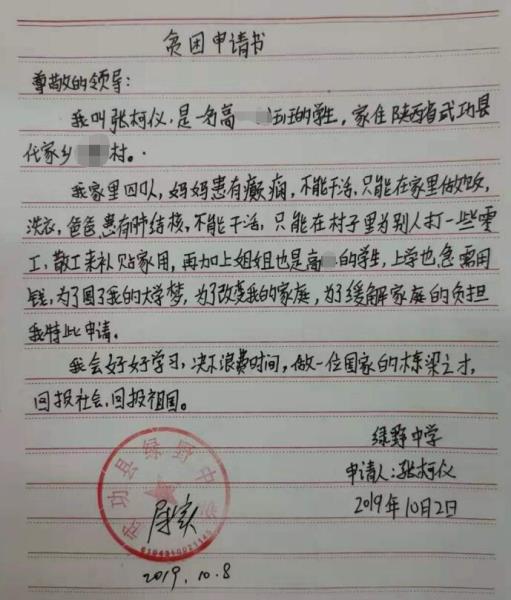 贫困申请书
尊敬的领导:
我叫张柯仪,是一名高 班的学生,家住陕西省武功县
代家乡 村。
我家里四口人,妈妈患有癫痫,不能干活,只能在家里做饭,
洗衣,爸爸患有肺结核,不能干活,只能在村子里为别人打一些零
工、散工来补贴家用,再加上姐姐也是高 的学生,上学也急需用
钱,为了圆了我的大学梦,为了改变我的家庭,为了缓解家庭的负担
我特此申请。
我会好好学习,决不浪费时间,做一位国家的栋梁之才,
回报社会,回报祖国。
绿野中学
申请人:张柯仪
2019年10月2日
武功县绿野中学
属实
2019.10.8